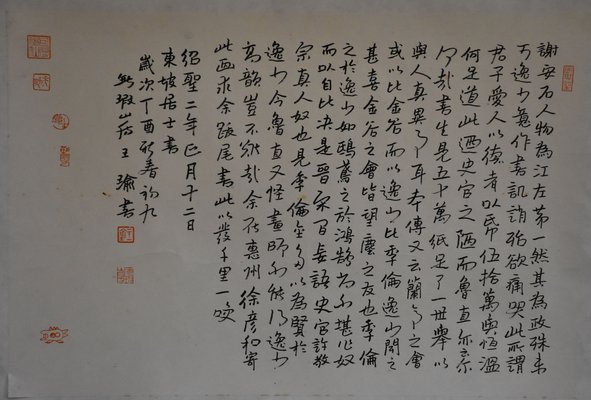 謝安石人物為江左第一然其為政殊未
可逸少意作書譏誚殆欲痛哭此所謂
君子愛人以德者以帋伍拾萬與恒溫
何足道此迺史官之陋而魯直亦云尔
何哉書生見五十萬紙足了一世舉以
與人真異事耳本傳又云蘭亭之會
或以比金谷而以逸少比季倫逸少聞之
甚喜金谷之會皆望塵之友也季倫
之於逸少如鴟鳶之於鴻鵠尚不堪作奴
而以自比决是晉宋間妄語史官許敬
宗真人奴也見季倫金多以為賢於
逸少今魯直又怪畫師不能得逸少
高韻豈不難哉余在惠州徐彥和寄
此画求余跋尾書此以發千里一咲
紹聖二年正月十二日
東坡居士書
歲次丁酉新春初九
山房王瑜書